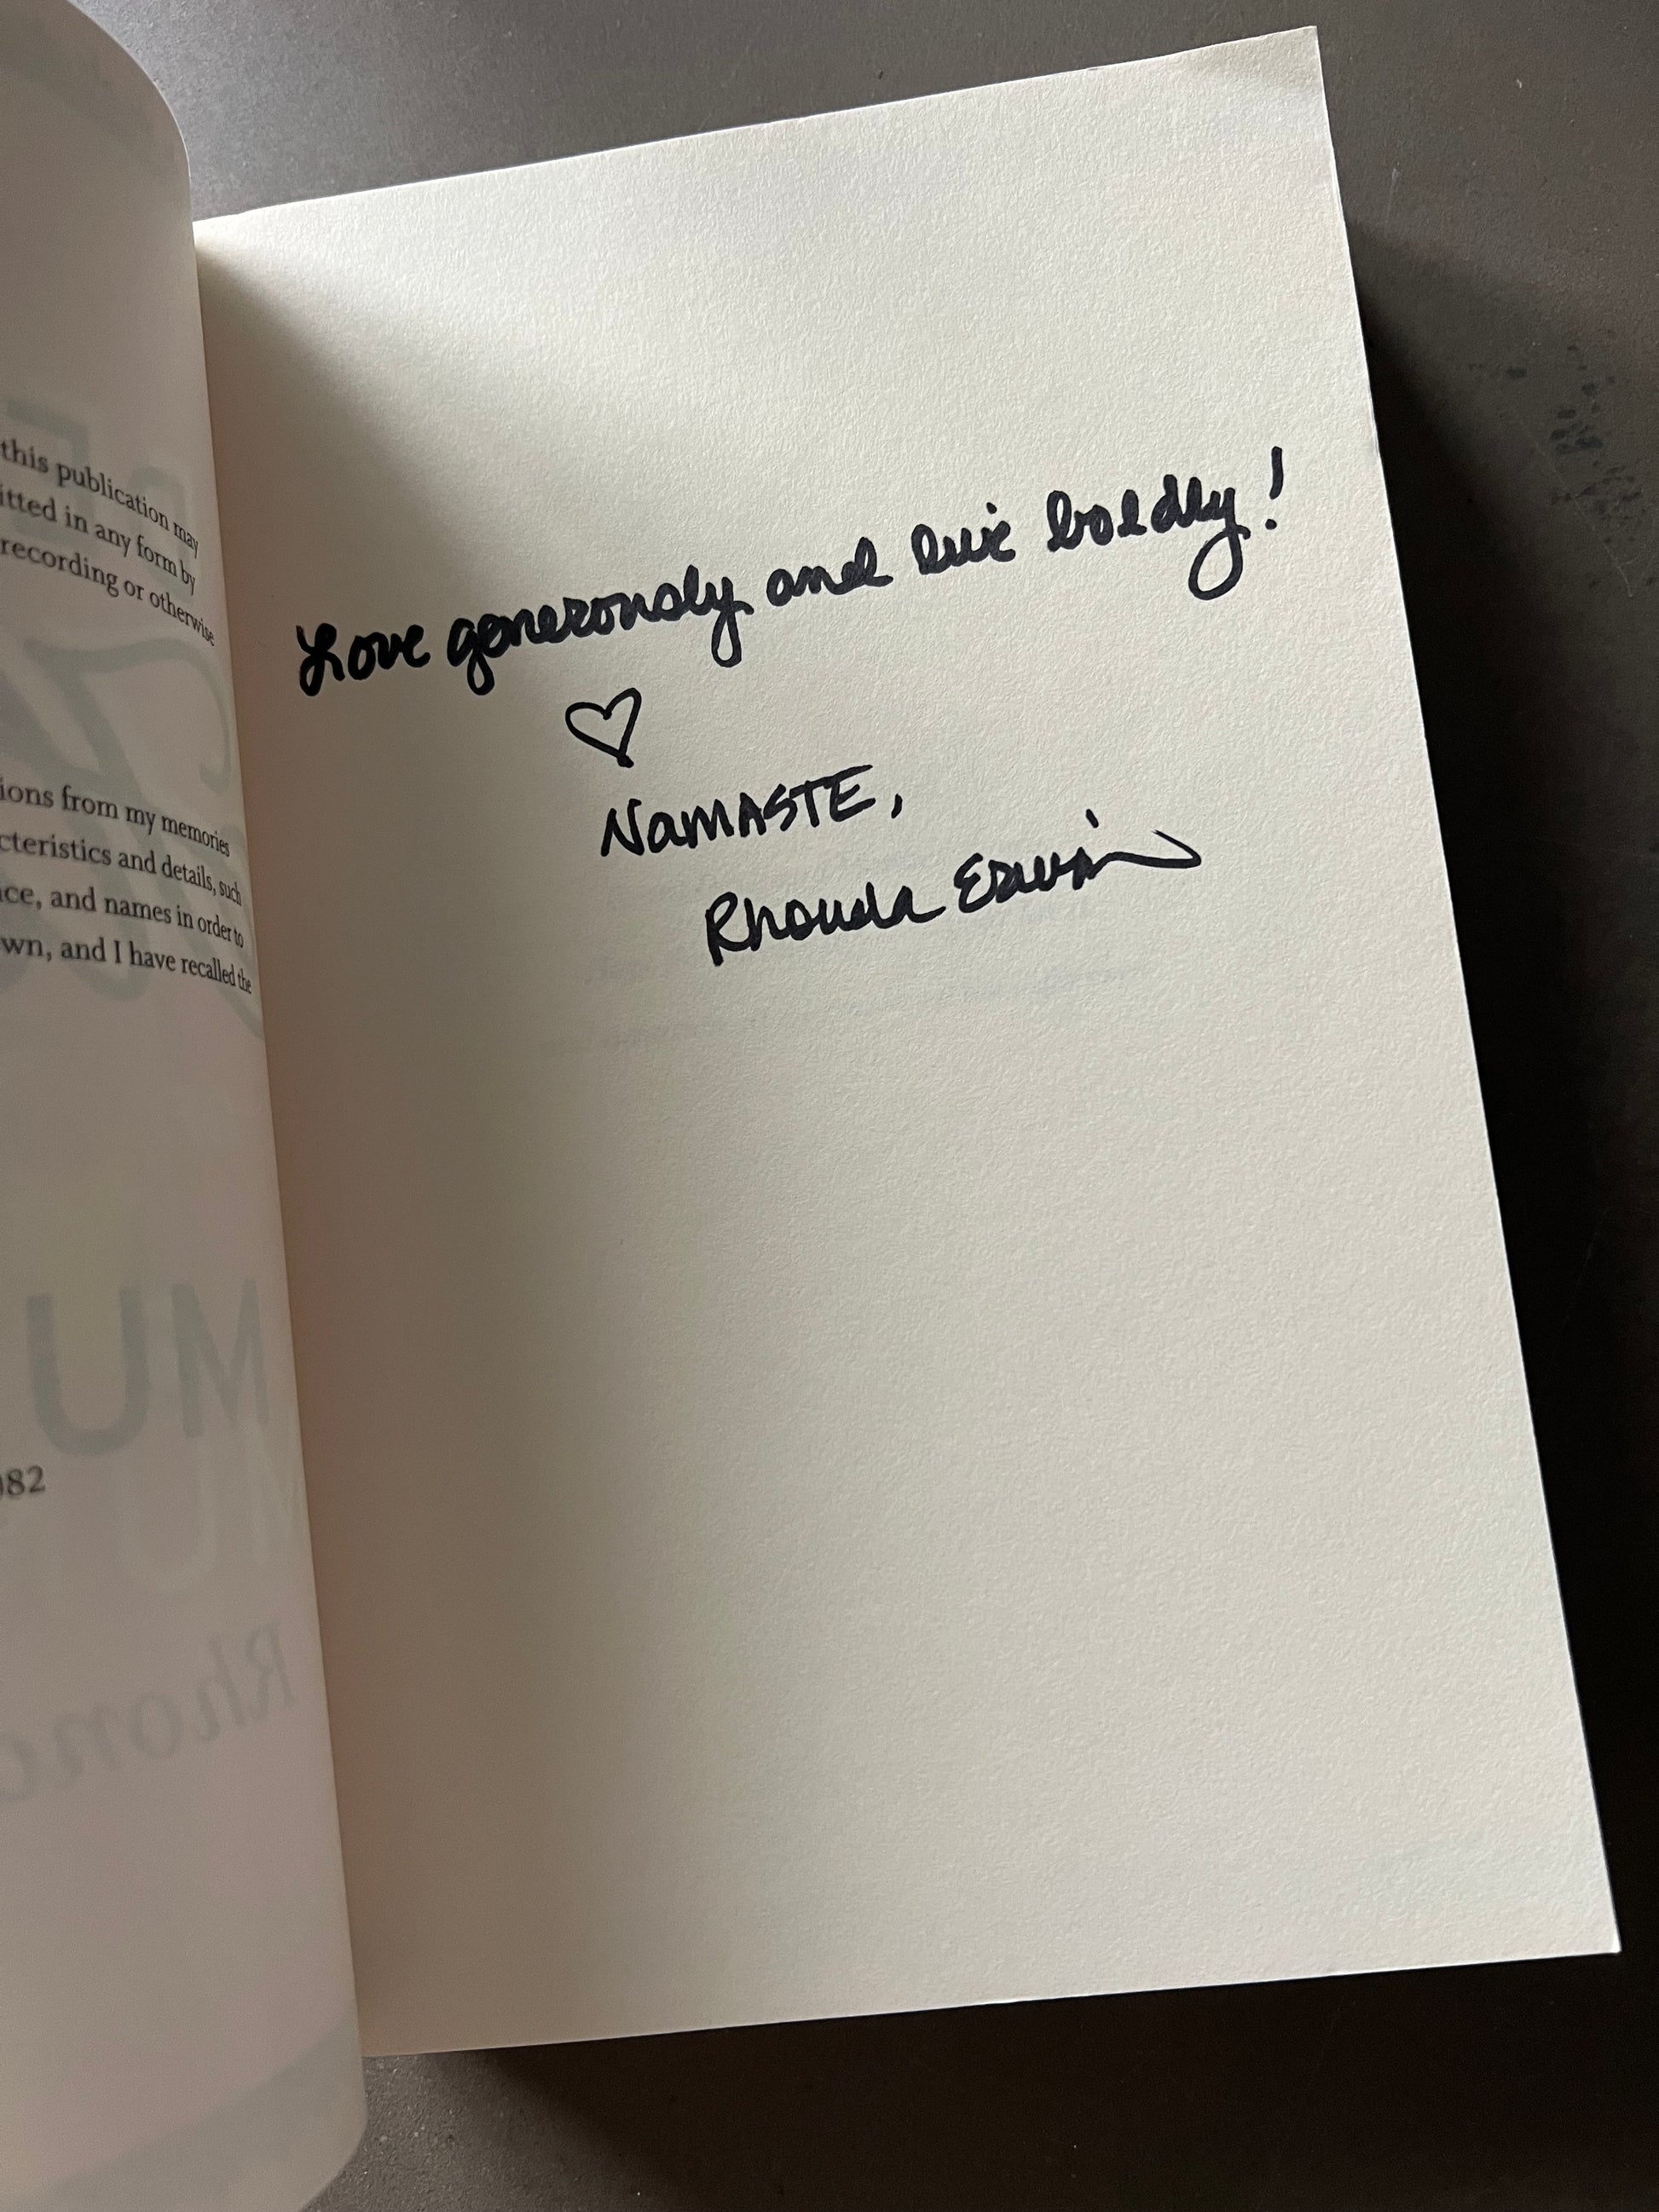 this publication may
itted in any form by
recording or otherwise
ions from my memories
cteristics and details, such
ce, and names in order to
wn, and I have recalled the
MU
082
Rhon
Love generously and live boldly!
NAMASTE,
Rhonda Erwin